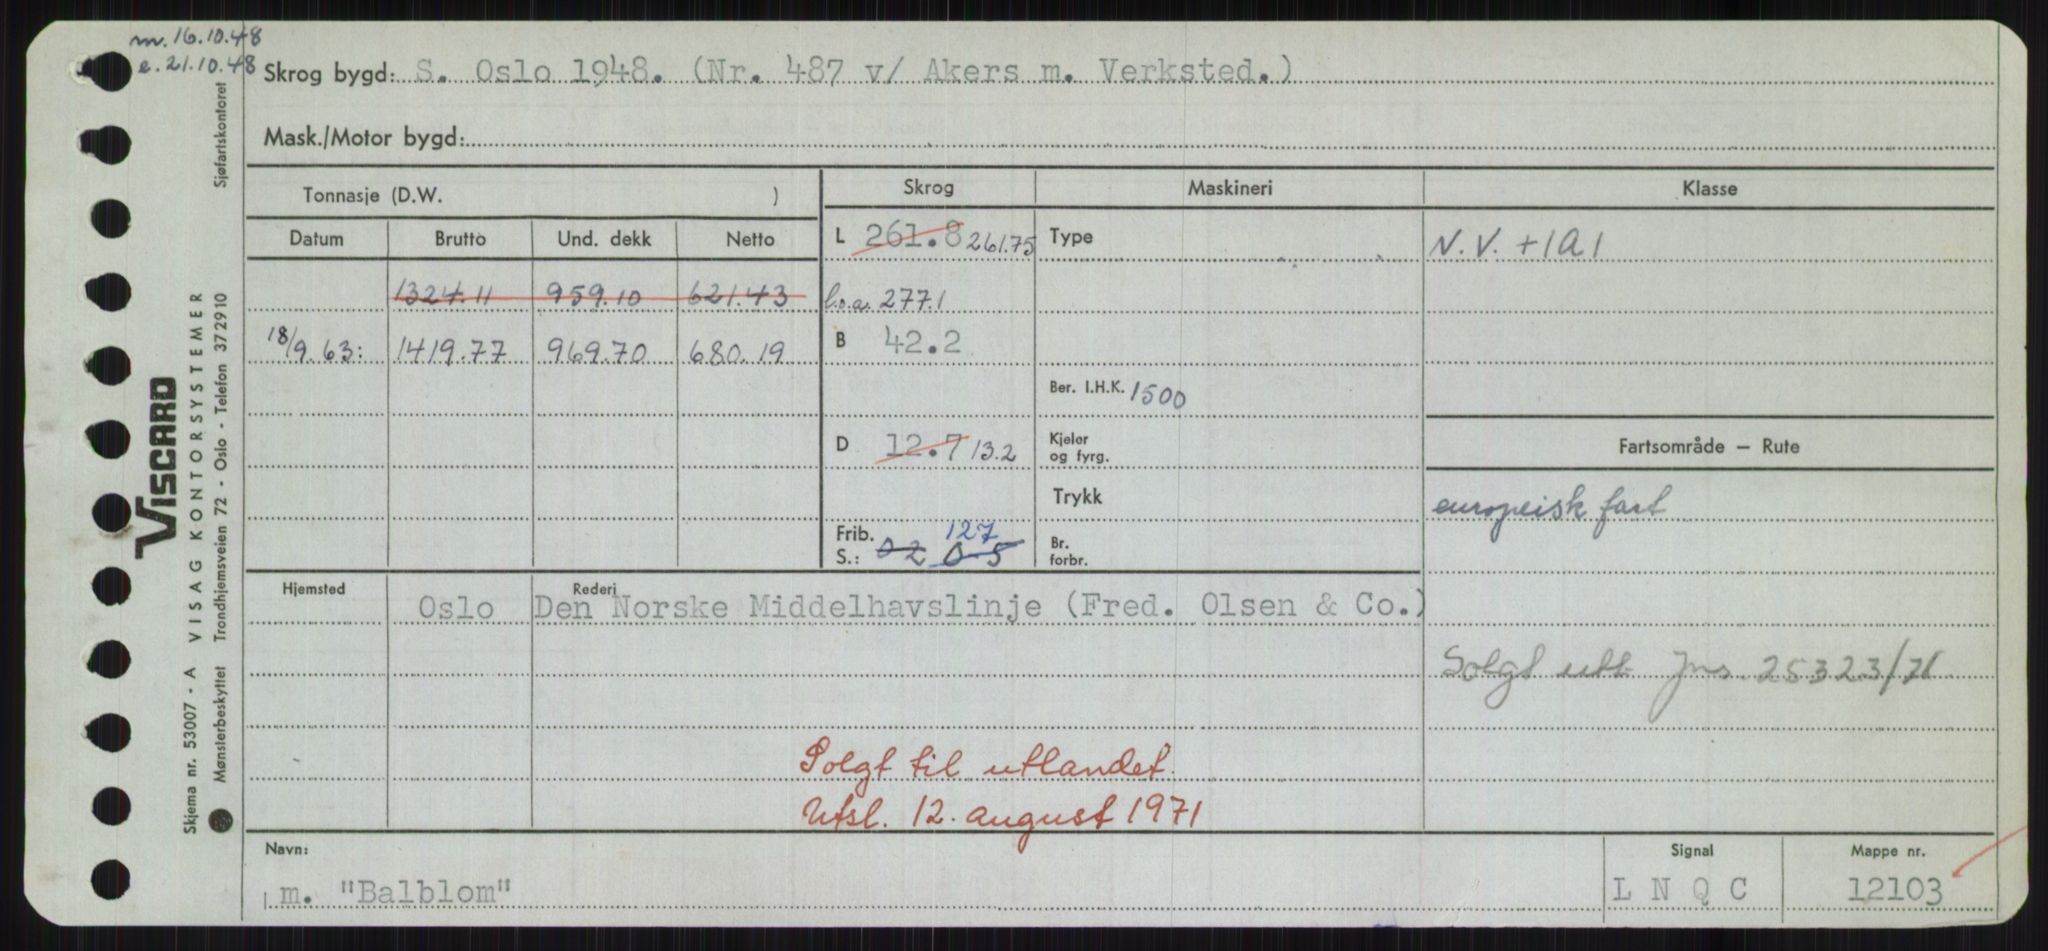 m. 16.10.48
e. 21.10.48
Skrog bygd: S. Oslo 1948. (Nr. 487 v/ Akers m. Verksted.)
Mask./Motor bygd:
Tonnasje (D.W. )
Datum Brutto Und. dekk Netto
1324.11 959.10 621.43
18/9.63: 1419.77 969.70 680.19
Skrog
L 261.8 261.75
l.o.a. 277.1
B 42.2
D 12.7 13.2
Frib. 127
S.: 02 05
Maskineri
Type
Ber. I.H.K. 1500
Kjeler
og fyrg.
Trykk
Br.
forbr.
Klasse
N.V. +1A1
Fartsområde – Rute
europeisk fart
Solgt utl. Jnr. 25323/71
Hjemsted Rederi
Oslo Den Norske Middelhavslinje (Fred. Olsen & Co.)
Solgt til utlandet.
Utsl. 12. august 1971
Navn: Signal Mappe nr.
m. "Balblom" L N Q C 12103
VISCARD
VISAG KONTORSYSTEMER
Trondhjemsveien 72 - Oslo - Telefon 372910
Sjøfartskontoret
Skjema nr. 53007 - A
Mønsterbeskyttet